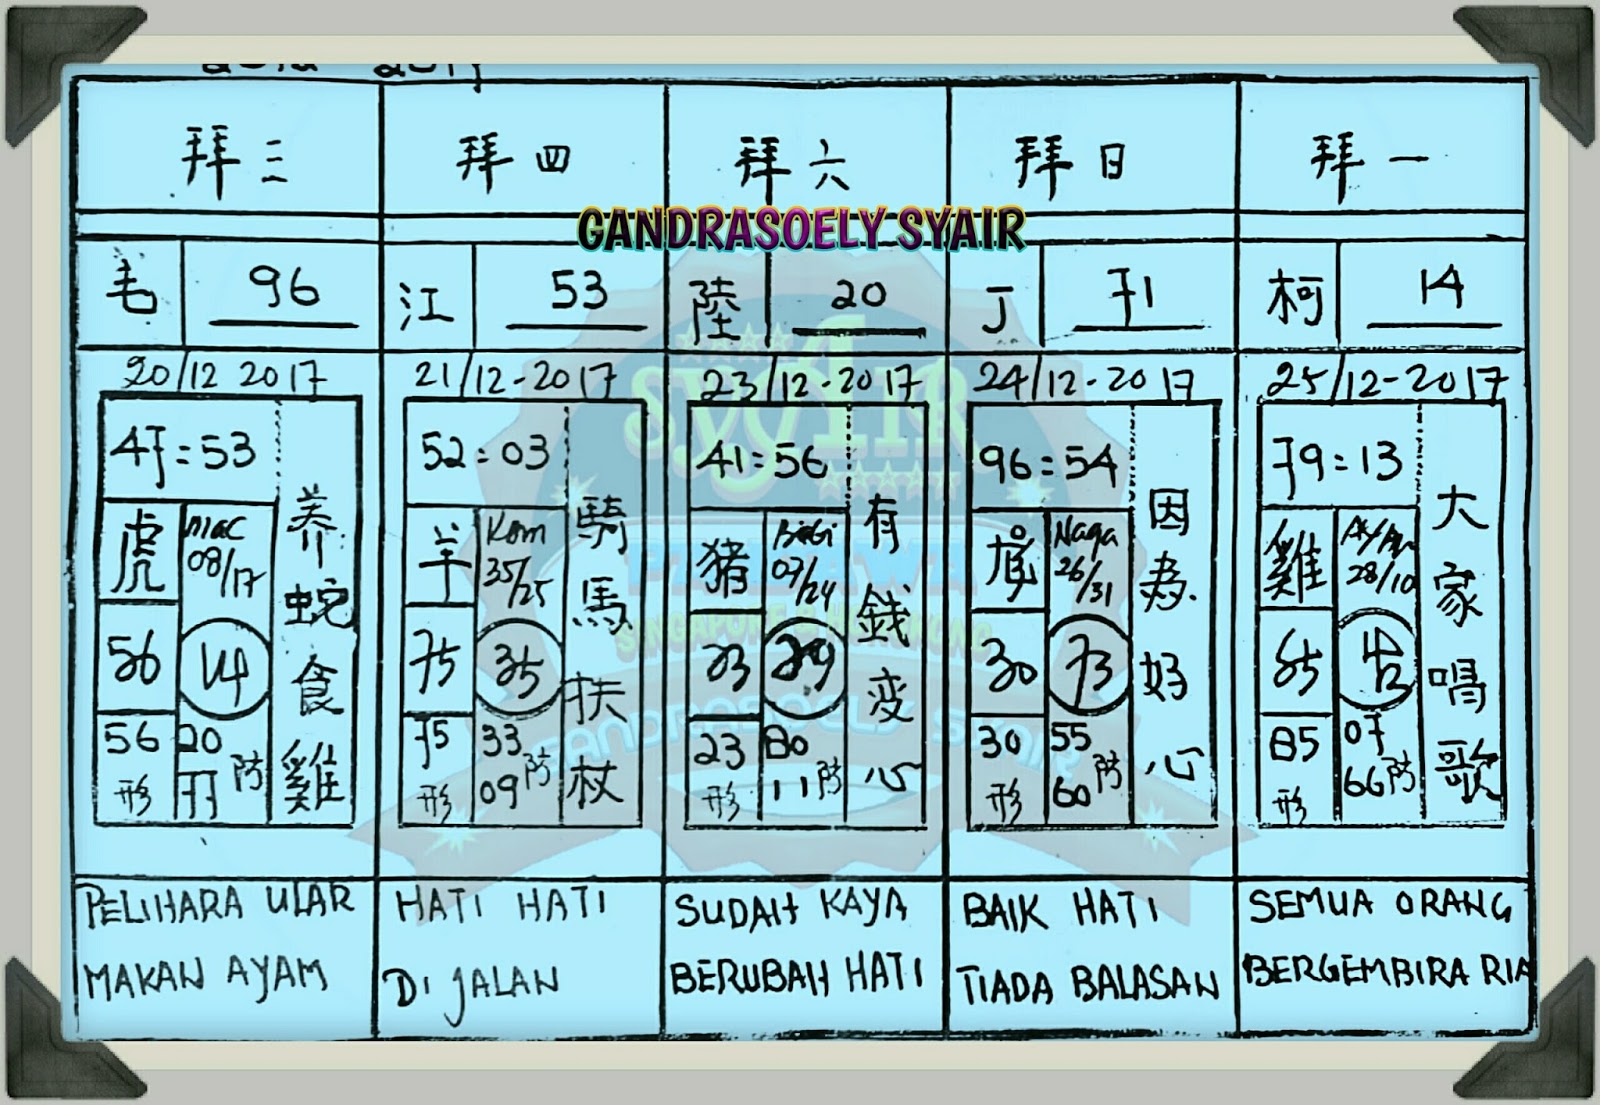 拜三
拜四
拜六
拜日
拜一
GANDRASOELY SYAIR
毛 96
江 53
陸 20
丁 71
柯 14
20/12 2017
21/12-2017
23/12-2017
24/12-2017
25/12-2017
47=53
虎
08/17
56
56
形
20
77
防
养蛇食雞
52=03
羊
Kam
35/25
75
35
75
形
33
09
防
騎馬扶杖
41=56
猪
Babi
07/24
23
23
形
80
11
防
有錢变心
96=54
Naga
26/31
30
73
30
形
55
60
防
因為好心
79=13
雞
28/10
85
85
形
07
66
防
大家唱歌
PELIHARA ULAR
MAKAN AYAM
HATI HATI
DI JALAN
SUDAH KAYA
BERUBAH HATI
BAIK HATI
TIADA BALASAN
SEMUA ORANG
BERGEMBIRA RIA